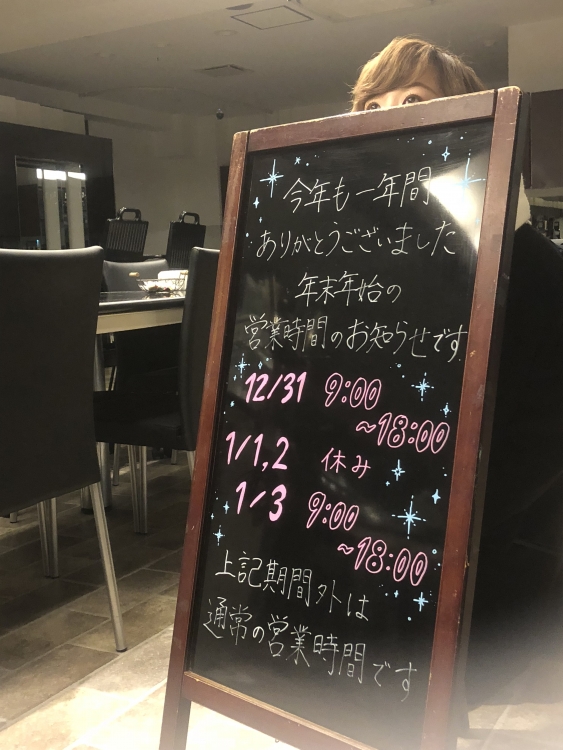 今年も一年間
ありがとうございました
年末年始の
営業時間のお知らせです
12/31 9:00
~18:00
1/1,2 休み
1/3 9:00
~18:00
上記期間外は
通常の営業時間です